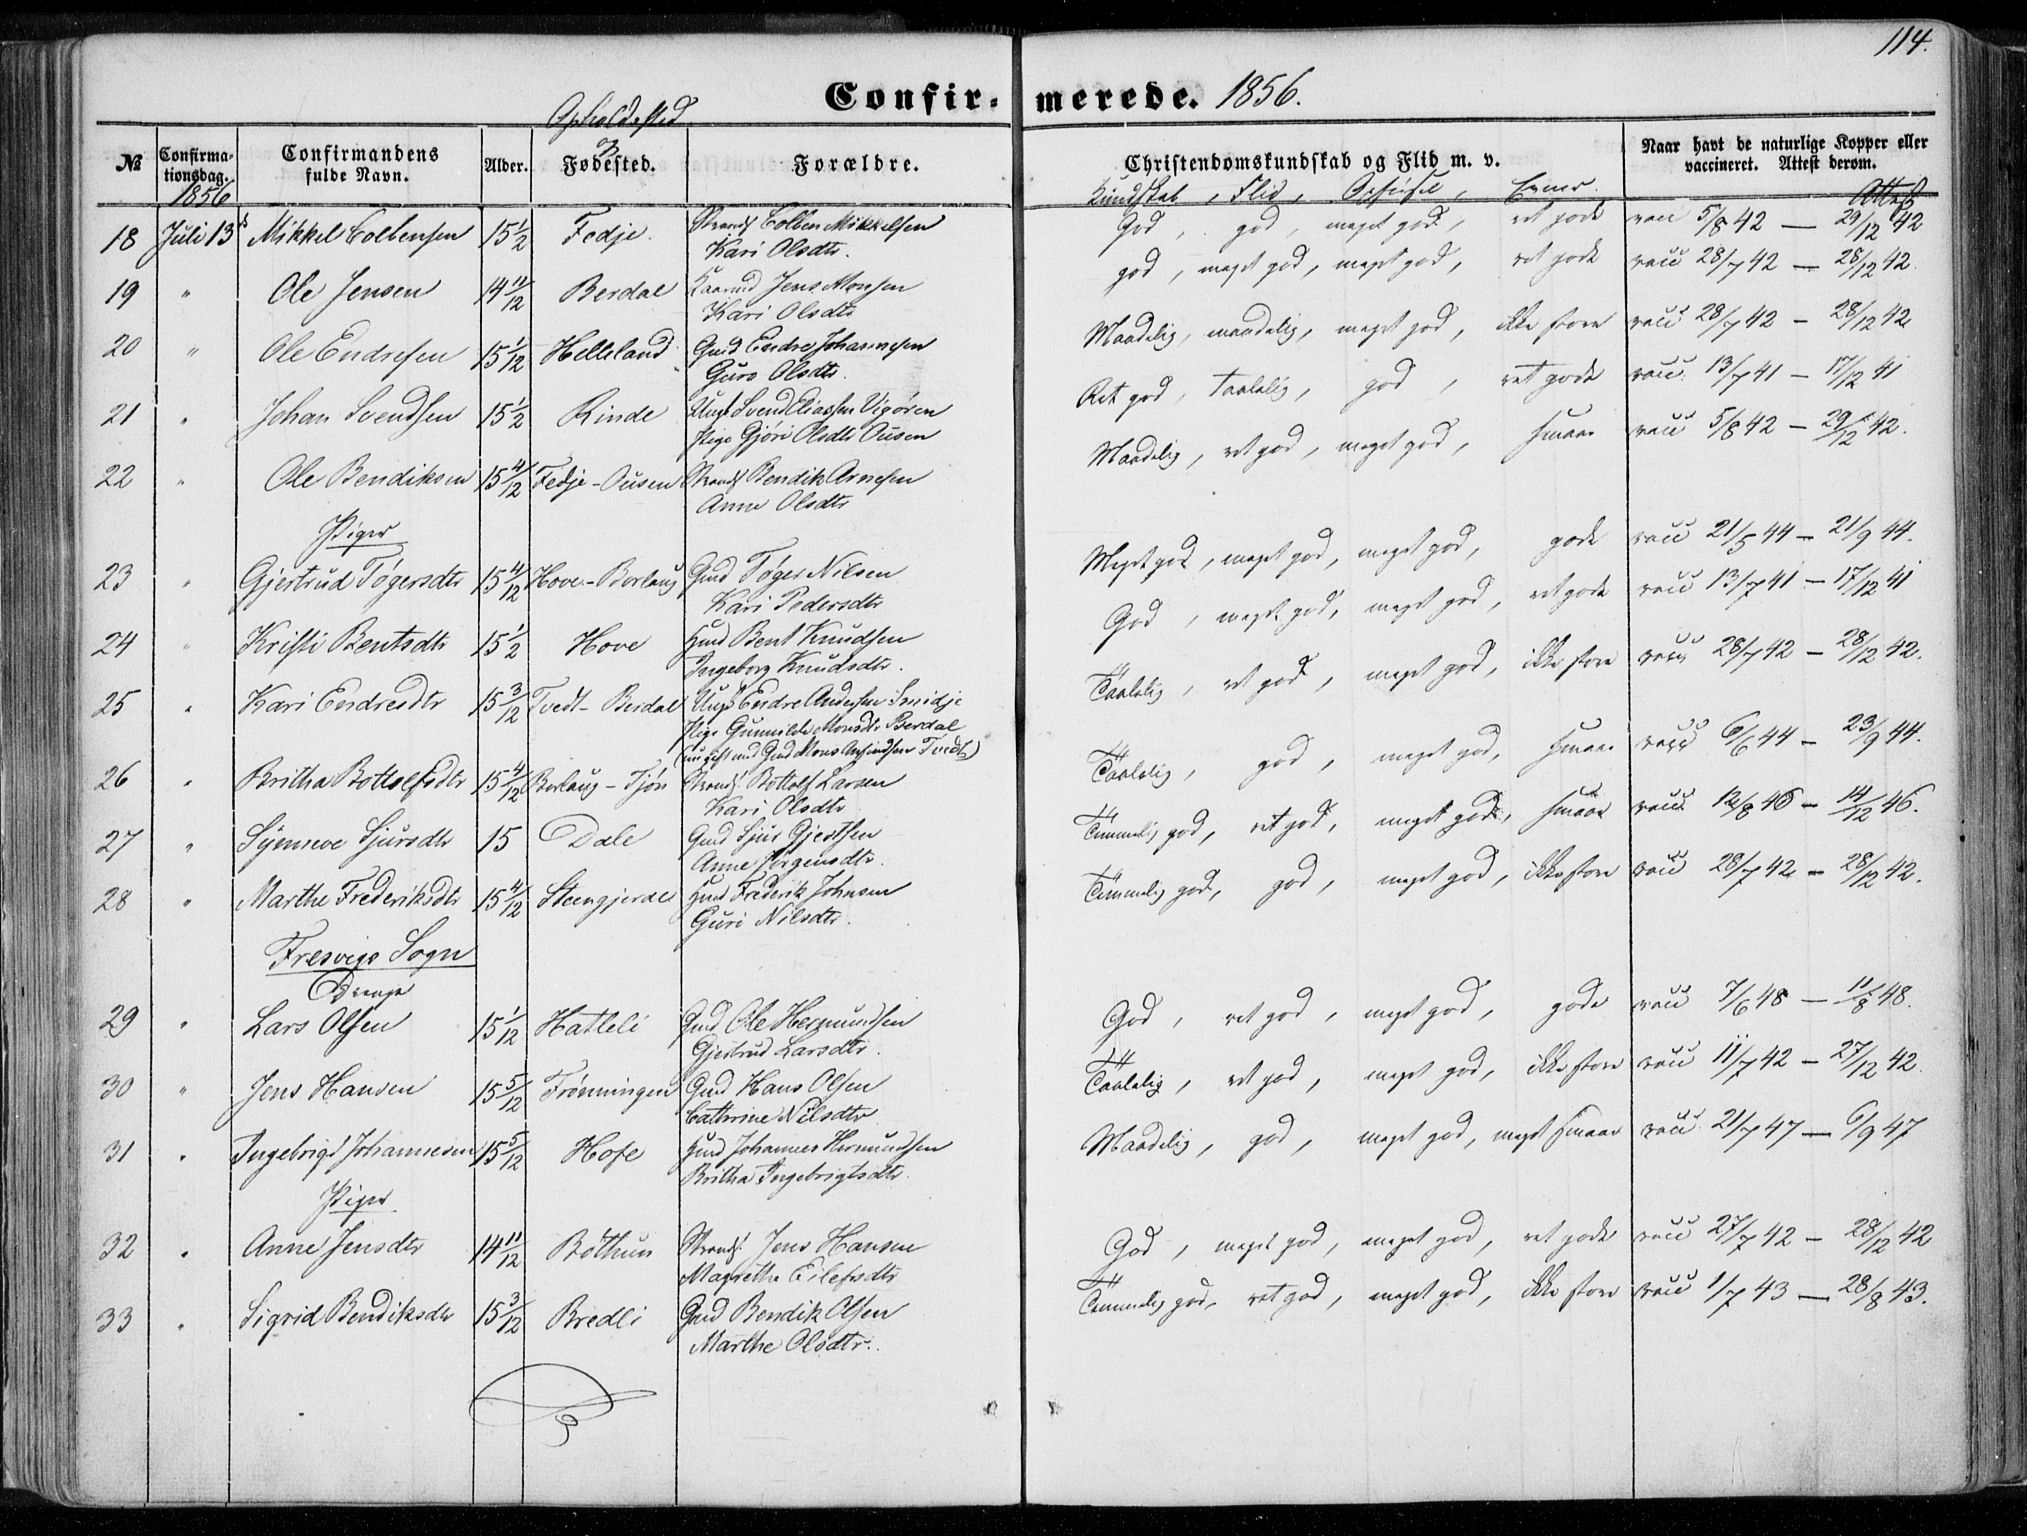 114.
Confirmerede. 1856.
Opholdssted
og
№ Confirmationsdag. Confirmandens fulde Navn. Alder. Fødested. Forældre. Christendomskundskab og Flid m. v. Naar havt de naturlige Kopper eller vaccineret. Attest derom.
1856 Kundskab, Flid, Opførsel, Evner. Attest
18 Juli 13 Mikkel Colbensen 15 1/2 Fedje. Strands Colben Mikkelsen God, god, meget god, ret gode vacc 5/8 42 — 29/12 42
Kari Olsdtr.
19 " Ole Jensen 14 11/12 Berdal Jens Monsen god, meget god, meget god, ret gode vacc 28/7 42 — 28/12 42.
Kari Olsdtr
20 " Ole Endresen 15 1/12 Helleland Gmd Endre Johannesen Maadelig, maadelig, meget god, ikke store vacc 28/7 42 — 28/12 42
Guro Olsdtr.
21 " Johan Svendsen 15 1/2 Rinde Ungk Svend Eliassen Vigøren Ret god, taalelig, god, ret gode vacc. 13/7 41 — 17/12 41
Pige Gjøri Olsdtr Ousen
22 " Ole Bendiksen 15 4/12 Fedje - Ousen Strands Bendik Arnesen Maadelig, ret god, meget god, smaae vacc 5/8 42 — 29/12 42.
Anne Olsdtr
Piger
23 " Gjertrud Tøgersdtr 15 4/12 Hove - Borlaug Gmd Tøger Nilsen Meget god, meget god, meget god, gode vacc 21/5 44 — 21/9 44.
Kari Pedersdtr
24 " Kristi Bentsdtr 15 1/2 Hove Hmd Bent Knudsen God, meget god, meget god, ret gode vacc 13/7 41 — 17/12 41
Ingeborg Knudsdtr.
25 " Kari Endresdtr 15 3/12 Tvedt - Berdal Ungk Endre Andersen Smidje Taalelig, ret god, meget god, ikke store vacc 28/7 42 — 28/12 42.
Pige Gunnilde Monsdtr Berdal
(nu gift med Gmd Mons Tvedt)
26 " Britha Bottolfsdtr 15 4/12 Borlaug - Tjøn Strands. Bottolf Larsen Taalelig, god, meget god, smaae vacc 6/6 44 — 23/9 44.
Kari Olsdtr
27 " Synneve Sjursdtr 15 Dale Gmd Sjur Gjertsen Temmelig god, ret god, meget god, smaae vacc 12/8 46 — 14/12 46.
Anne Jørgensdtr.
28 " Marthe Frederiksdtr 15 4/12 Steengjerde Hmd Frederik Johnsen Temmelig god, god, meget god, ikke store vacc 28/7 42 — 28/12 42.
Guri Nilsdtr.
Fresvigs Sogn
Drenge
29 " Lars Olsen 15 1/12 Hatleli Gmd Ole Hermundsen God, ret god, meget god, gode vacc 7/6 48 — 11/8 48.
Gjertrud Larsdtr.
30 " Jens Hansen 15 5/12 Frønningen Gmd Hans Olsen Taalelig, ret god, meget god, ikke store vacc 11/7 42 — 27/12 42.
Cathrine Nilsdtr
31 " Ingebrigt Johannesen 15 5/12 Hofe Hmd Johannes Hermundsen Maadelig, god, meget god, meget smaae vacc. 21/7 47 — 6/9 47
Britha Ingebrigtsdtr.
Piger
32 " Anne Jensdtr 14 11/12 Bøthun Strands. Jens Hansen God, meget god, meget god, ret gode vacc 27/7 42 — 28/12 42
Magrethe Eilefsdtr
33 " Sigrid Bendiksdtr 15 3/12 Bredli Gmd Bendik Olsen Temmelig god, ret god, meget god, ikke store vacc 1/7 43 — 28/8 43.
Marthe Olsdtr.